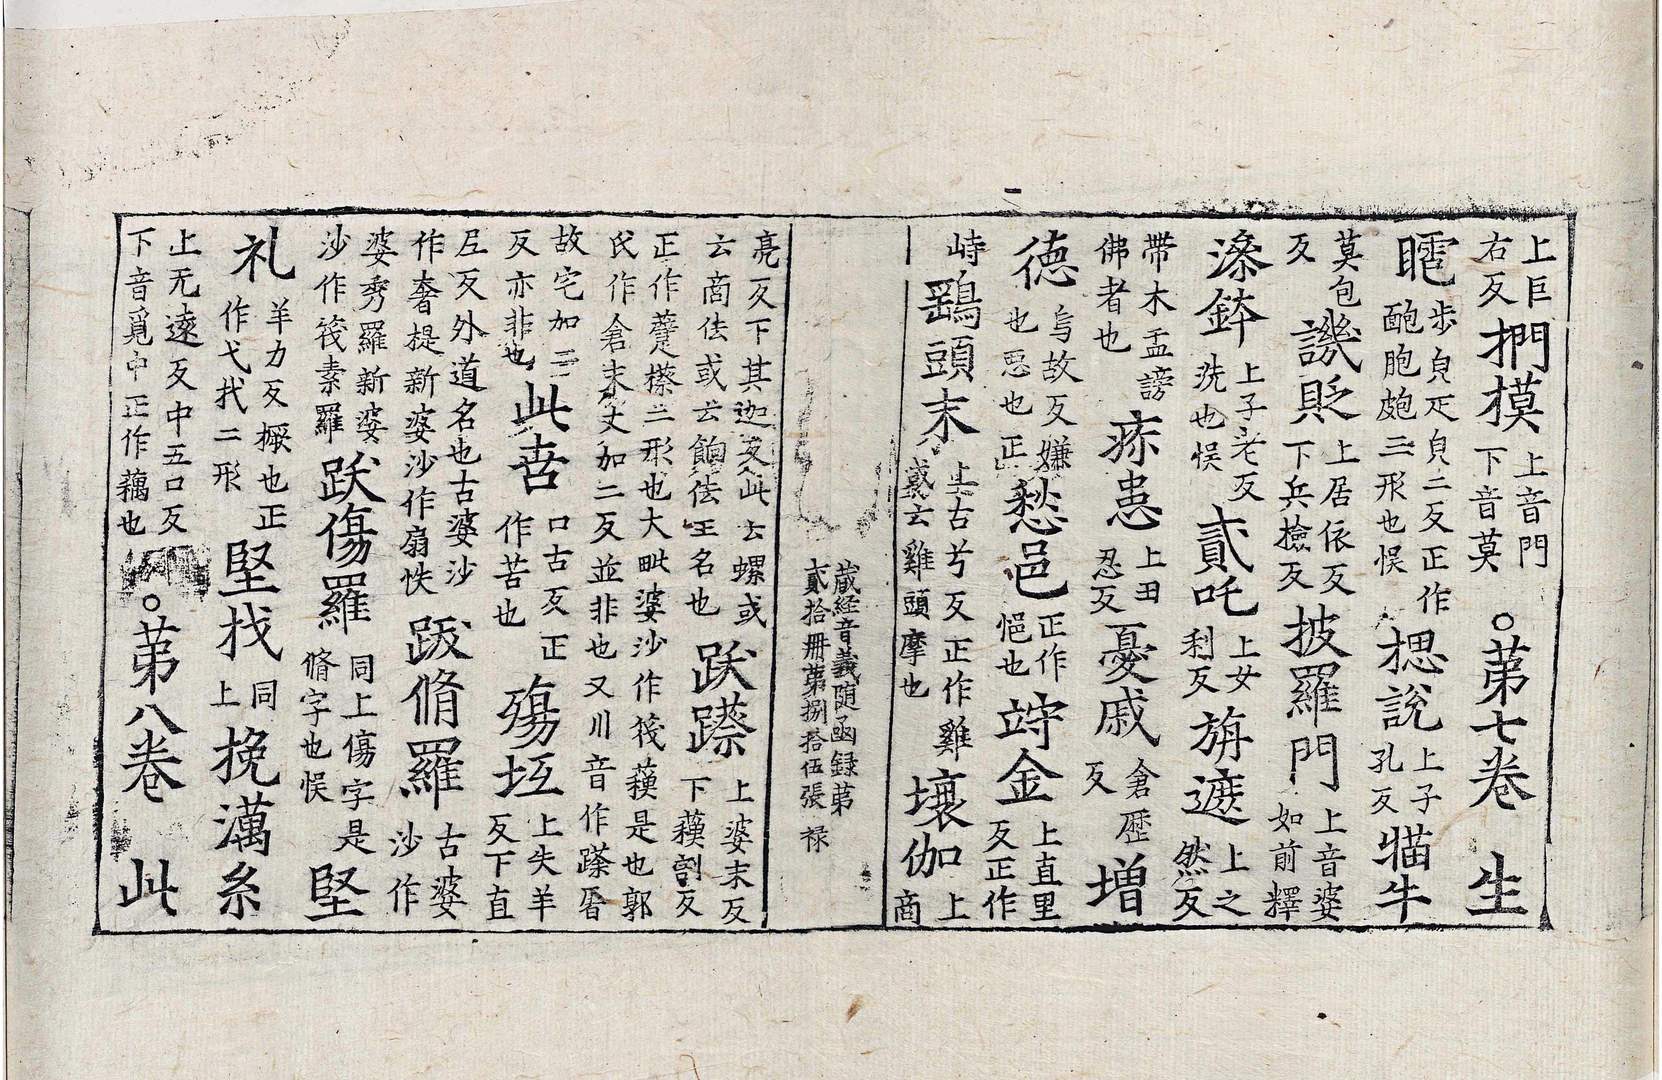 上巨右反捫摸上音門下音莫○第七卷 生
䨱步皃疋皃二反正作䩝胞皰三形也悮揌說上子孔反猫牛
莫包反譏貶上居依反下兵檢反披羅門上音婆如前釋
澡鉢上子老反洗也悮貳吒上女利反旃遮上之然反
帶木盂謗佛者也疢患上田忍反憂戚倉歷反增
德烏故反嫌也惡也正愁邑正作悒也竚金上直里反正作
峙鷄頭末上古兮反正作雞或云雞頭摩也壞伽上商
藏經音義隨函録第貳拾冊第捌拾伍張 禄
亮反下其迦反此云螺或云商佉或云餉佉王名也跃蹉上婆末反下蘓割反
正作躠檫三形也大毗婆沙作筏蘓是也郭氏作倉末丈加二反並非也又川音作蹉厝
故宅加三反亦非也此壴口古反正作苦也殤坘上失羊反下直
㞐反外道名也古婆沙作奢提新婆沙作扇帙跋脩羅古婆沙作
婆秀羅新婆沙作筏素羅跃傷羅同上傷字是脩字也悮堅
礼羊力反橛也正作弋杙二形堅找同上挽㵧糸
上无遠反中五口反下音覓中正作藕也○第八卷 此